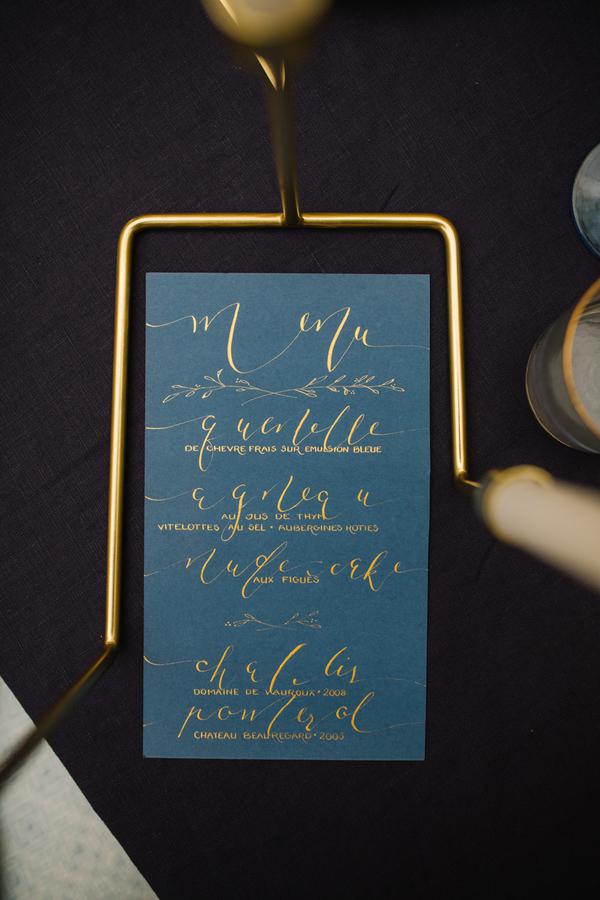 menu
quenelle
DE CHEVRE FRAIS SUR EMULSION BLEUE
agneau
AU JUS DE THYM
VITELOTTES AU SEL • AUBERGINES ROTIES
nude-cake
AUX FIGUES
chablis
DOMAINE DE VAUROUX • 2008
pomerol
CHATEAU BEAUREGARD • 2005